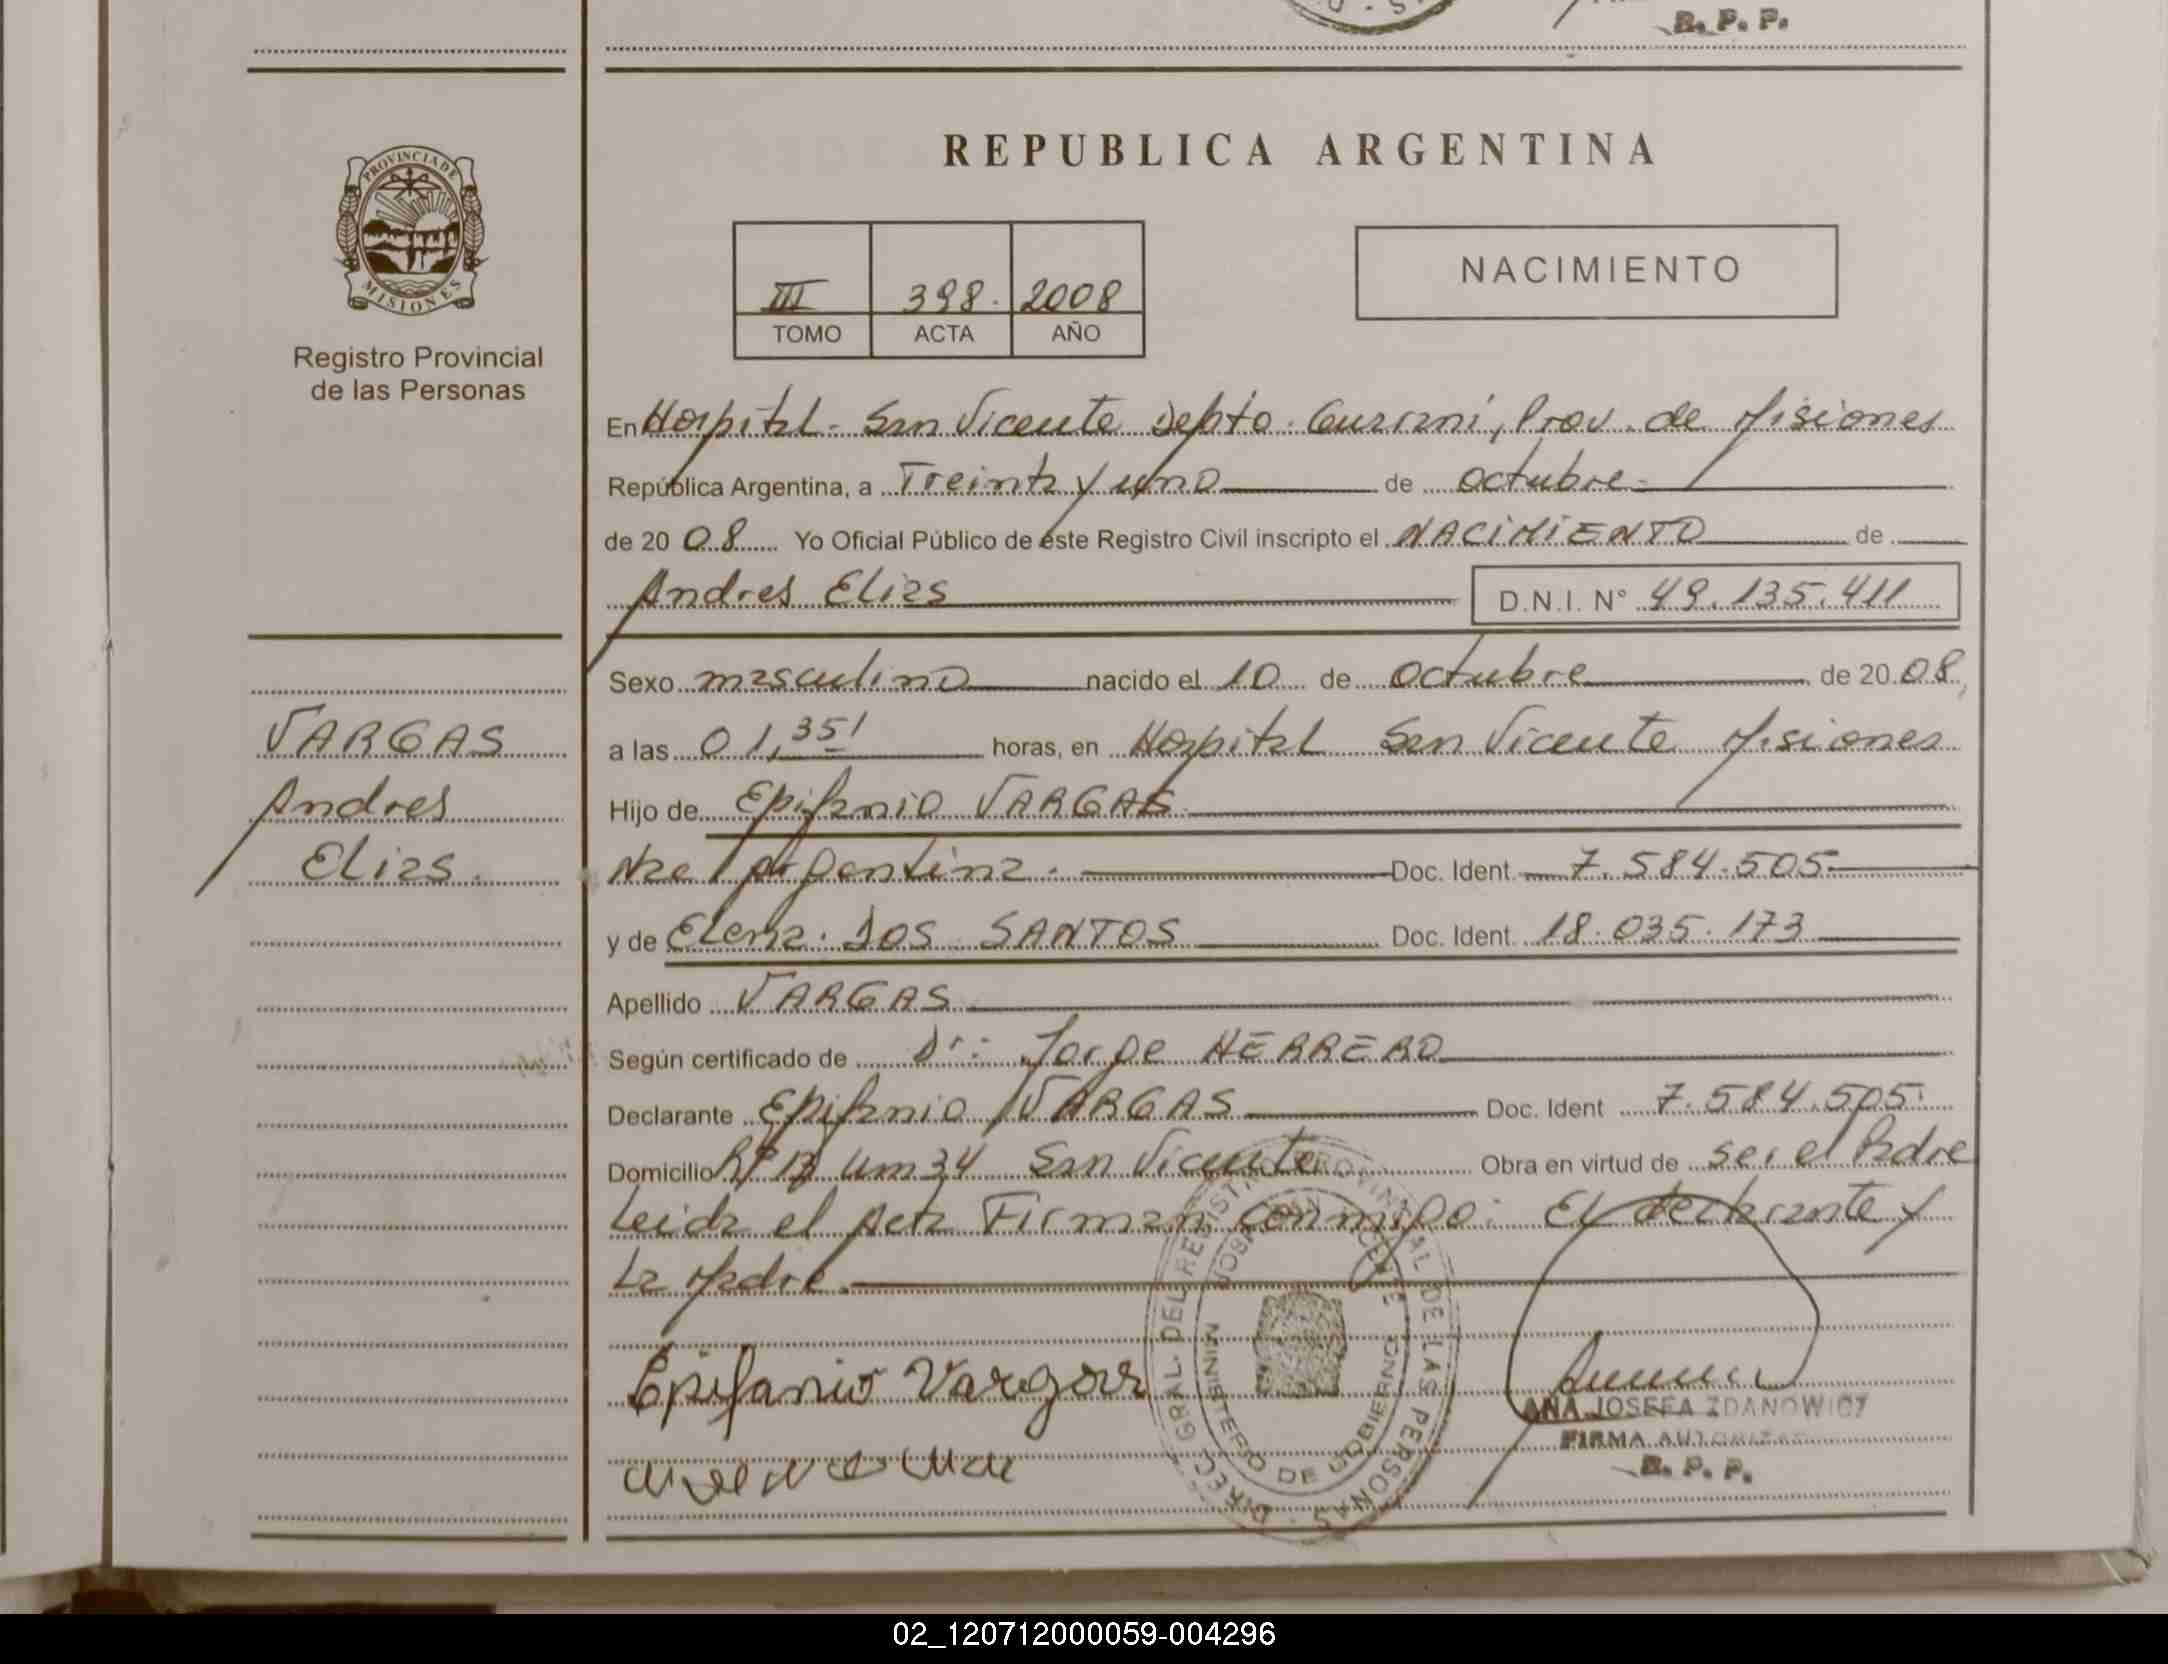 R. P. P.
REPUBLICA ARGENTINA
PROVINCIA DE
MISIONES
Registro Provincial
de las Personas
III 398. 2008
TOMO ACTA AÑO
NACIMIENTO
En Hospital - San Vicente Depto. Guarani, Prov. de Misiones
República Argentina, a Treinta y uno de octubre.
de 20 08 Yo Oficial Público de este Registro Civil inscripto el NACIMIENTO de
Andres Elias D.N.I. N° 49.135.411
Sexo masculino nacido el 10 de Octubre de 20 08
VARGAS
a las 01,35' horas, en Hospital San Vicente Misiones
Andres
Hijo de Epifanio VARGAS
Elias.
Nac Argentina. Doc. Ident. 7.584.505
y de Elena DOS SANTOS Doc. Ident. 18.035.173
Apellido VARGAS
Según certificado de Dr: Jorge HERRERO
Declarante Epifanio VARGAS Doc. Ident 7.584.505
Domicilio RP 13 Km 34 San Vicente Obra en virtud de ser el Padre
Leida el Acta Firman conmigo: El declarante y
La Madre.
Epifanio Vargas
DIREC. GRAL. DEL REGISTRO PROVINCIAL DE LAS PERSONAS
HOSPITAL SAN VICENTE
MINISTERIO DE GOBIERNO
ANA JOSEFA ZDANOWICZ
FIRMA AUTORIZADA
R. P. P.
02_120712000059-004296